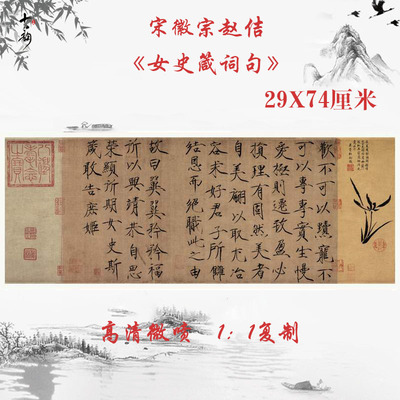 宋徽宗赵佶
《女史箴词句》
29X74厘米
歡不可以黷寵不
可以專專實生慢
愛極則遷致盈必
損理有固然美者
自美翩以取尤冶
容求好君子所讎
結恩而絕職此之由
故曰翼翼矜矜福
所以興靖恭自思
榮顯所期女史斯
箴敢告庶姬
高清微喷 1：1复制